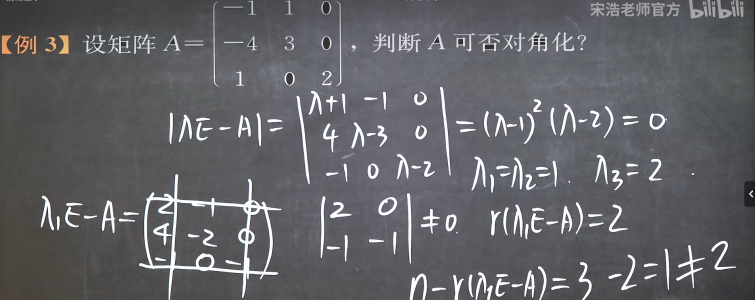 宋浩老师官方 bilibili
【例 3】设矩阵 A= (-1 1 0; -4 3 0; 1 0 2), 判断 A 可否对角化?
|λE-A| = |λ+1 -1 0; 4 λ-3 0; -1 0 λ-2| = (λ-1)²(λ-2) = 0
λ₁=λ₂=1. λ₃=2.
λ₁E-A = (2 -1 0; 4 -2 0; -1 0 -1) |2 0; -1 -1| ≠0. r(λ₁E-A)=2
n-r(λ₁E-A)=3-2=1≠2